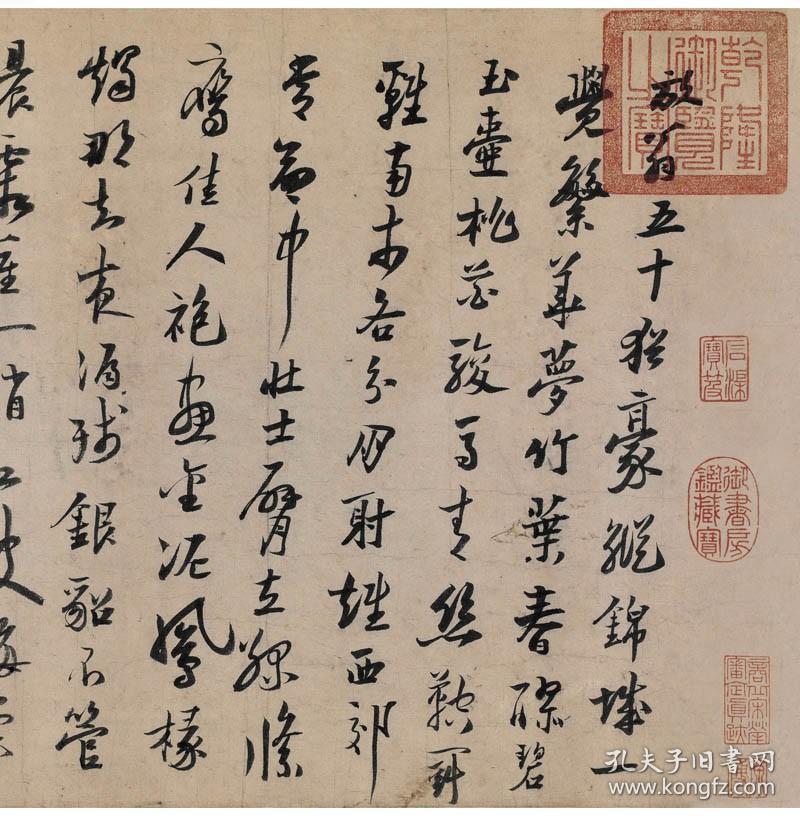 乾隆御覽之寶
石渠寶笈
御書房鑑藏寶
放翁五十猶豪縱錦城一
覺繁華夢竹葉春醪碧
玉壺桃花駿馬青絲鞚鬥
雞南市各分朋射雉西郊
常命中壯士臂立綠絛
鷹佳人袍畫金泥鳳椽
燭那知夜漏殘銀貂不管
晨霜重一梢
孔夫子旧书网
kongfz.com